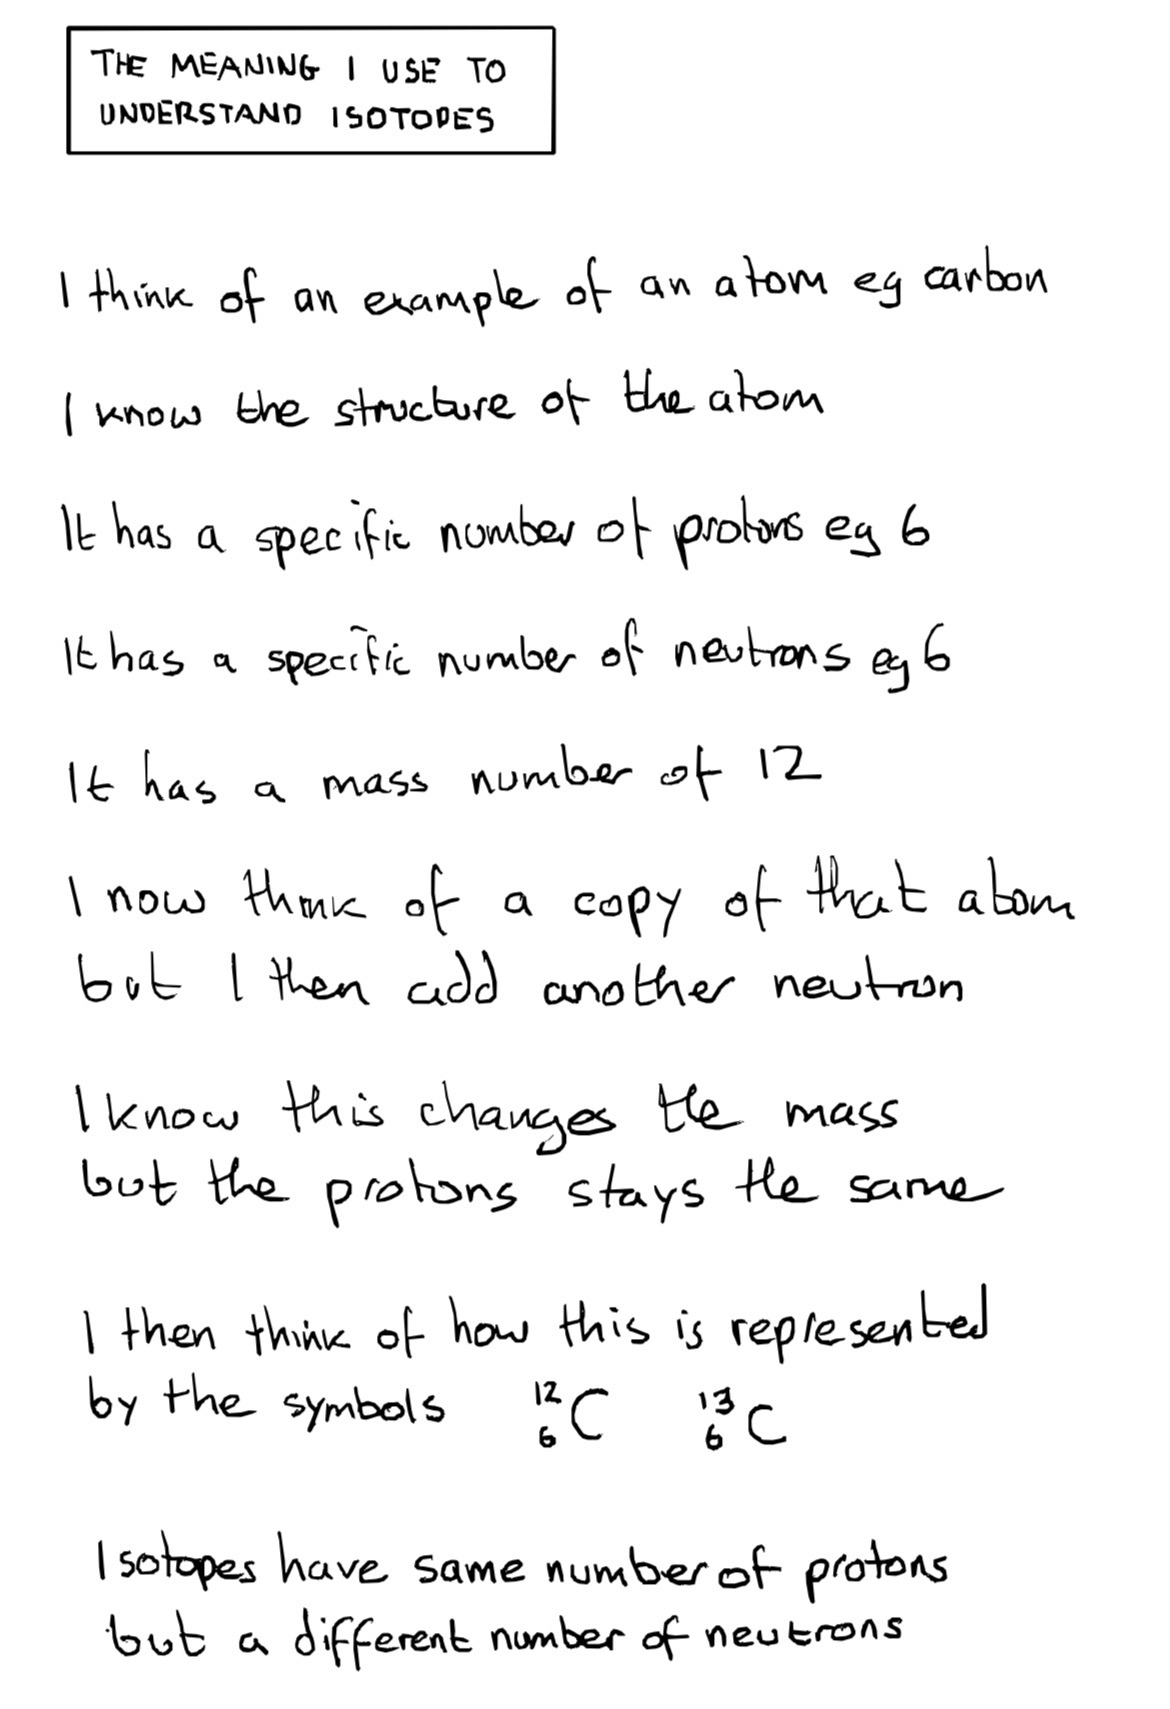 THE MEANING I USE TO
UNDERSTAND ISOTOPES
I think of an example of an atom eg carbon
I know the structure of the atom
It has a specific number of protons eg 6
It has a specific number of neutrons eg 6
It has a mass number of 12
I now think of a copy of that atom
but I then add another neutron
I know this changes the mass
but the protons stays the same
I then think of how this is represented
by the symbols ¹²₆C ¹³₆C
Isotopes have same number of protons
but a different number of neutrons